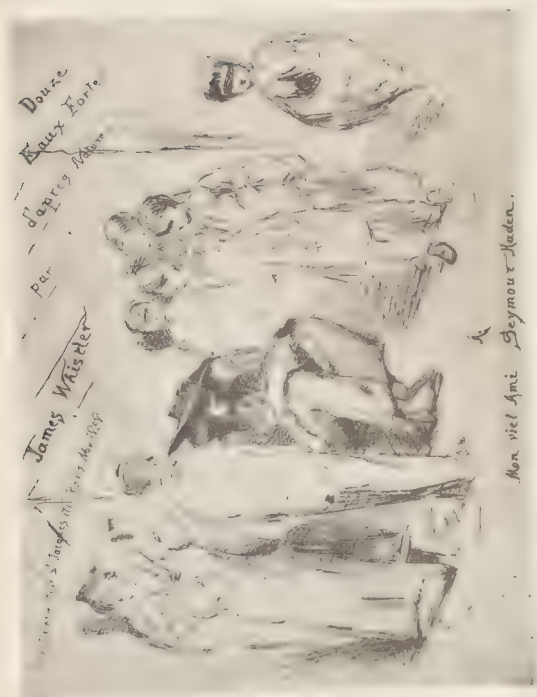 Douze
Eaux Forte
d'après Nature
par
James Whistler
Jacques 171 Paris
A
Mon viel Ami Seymour Haden.